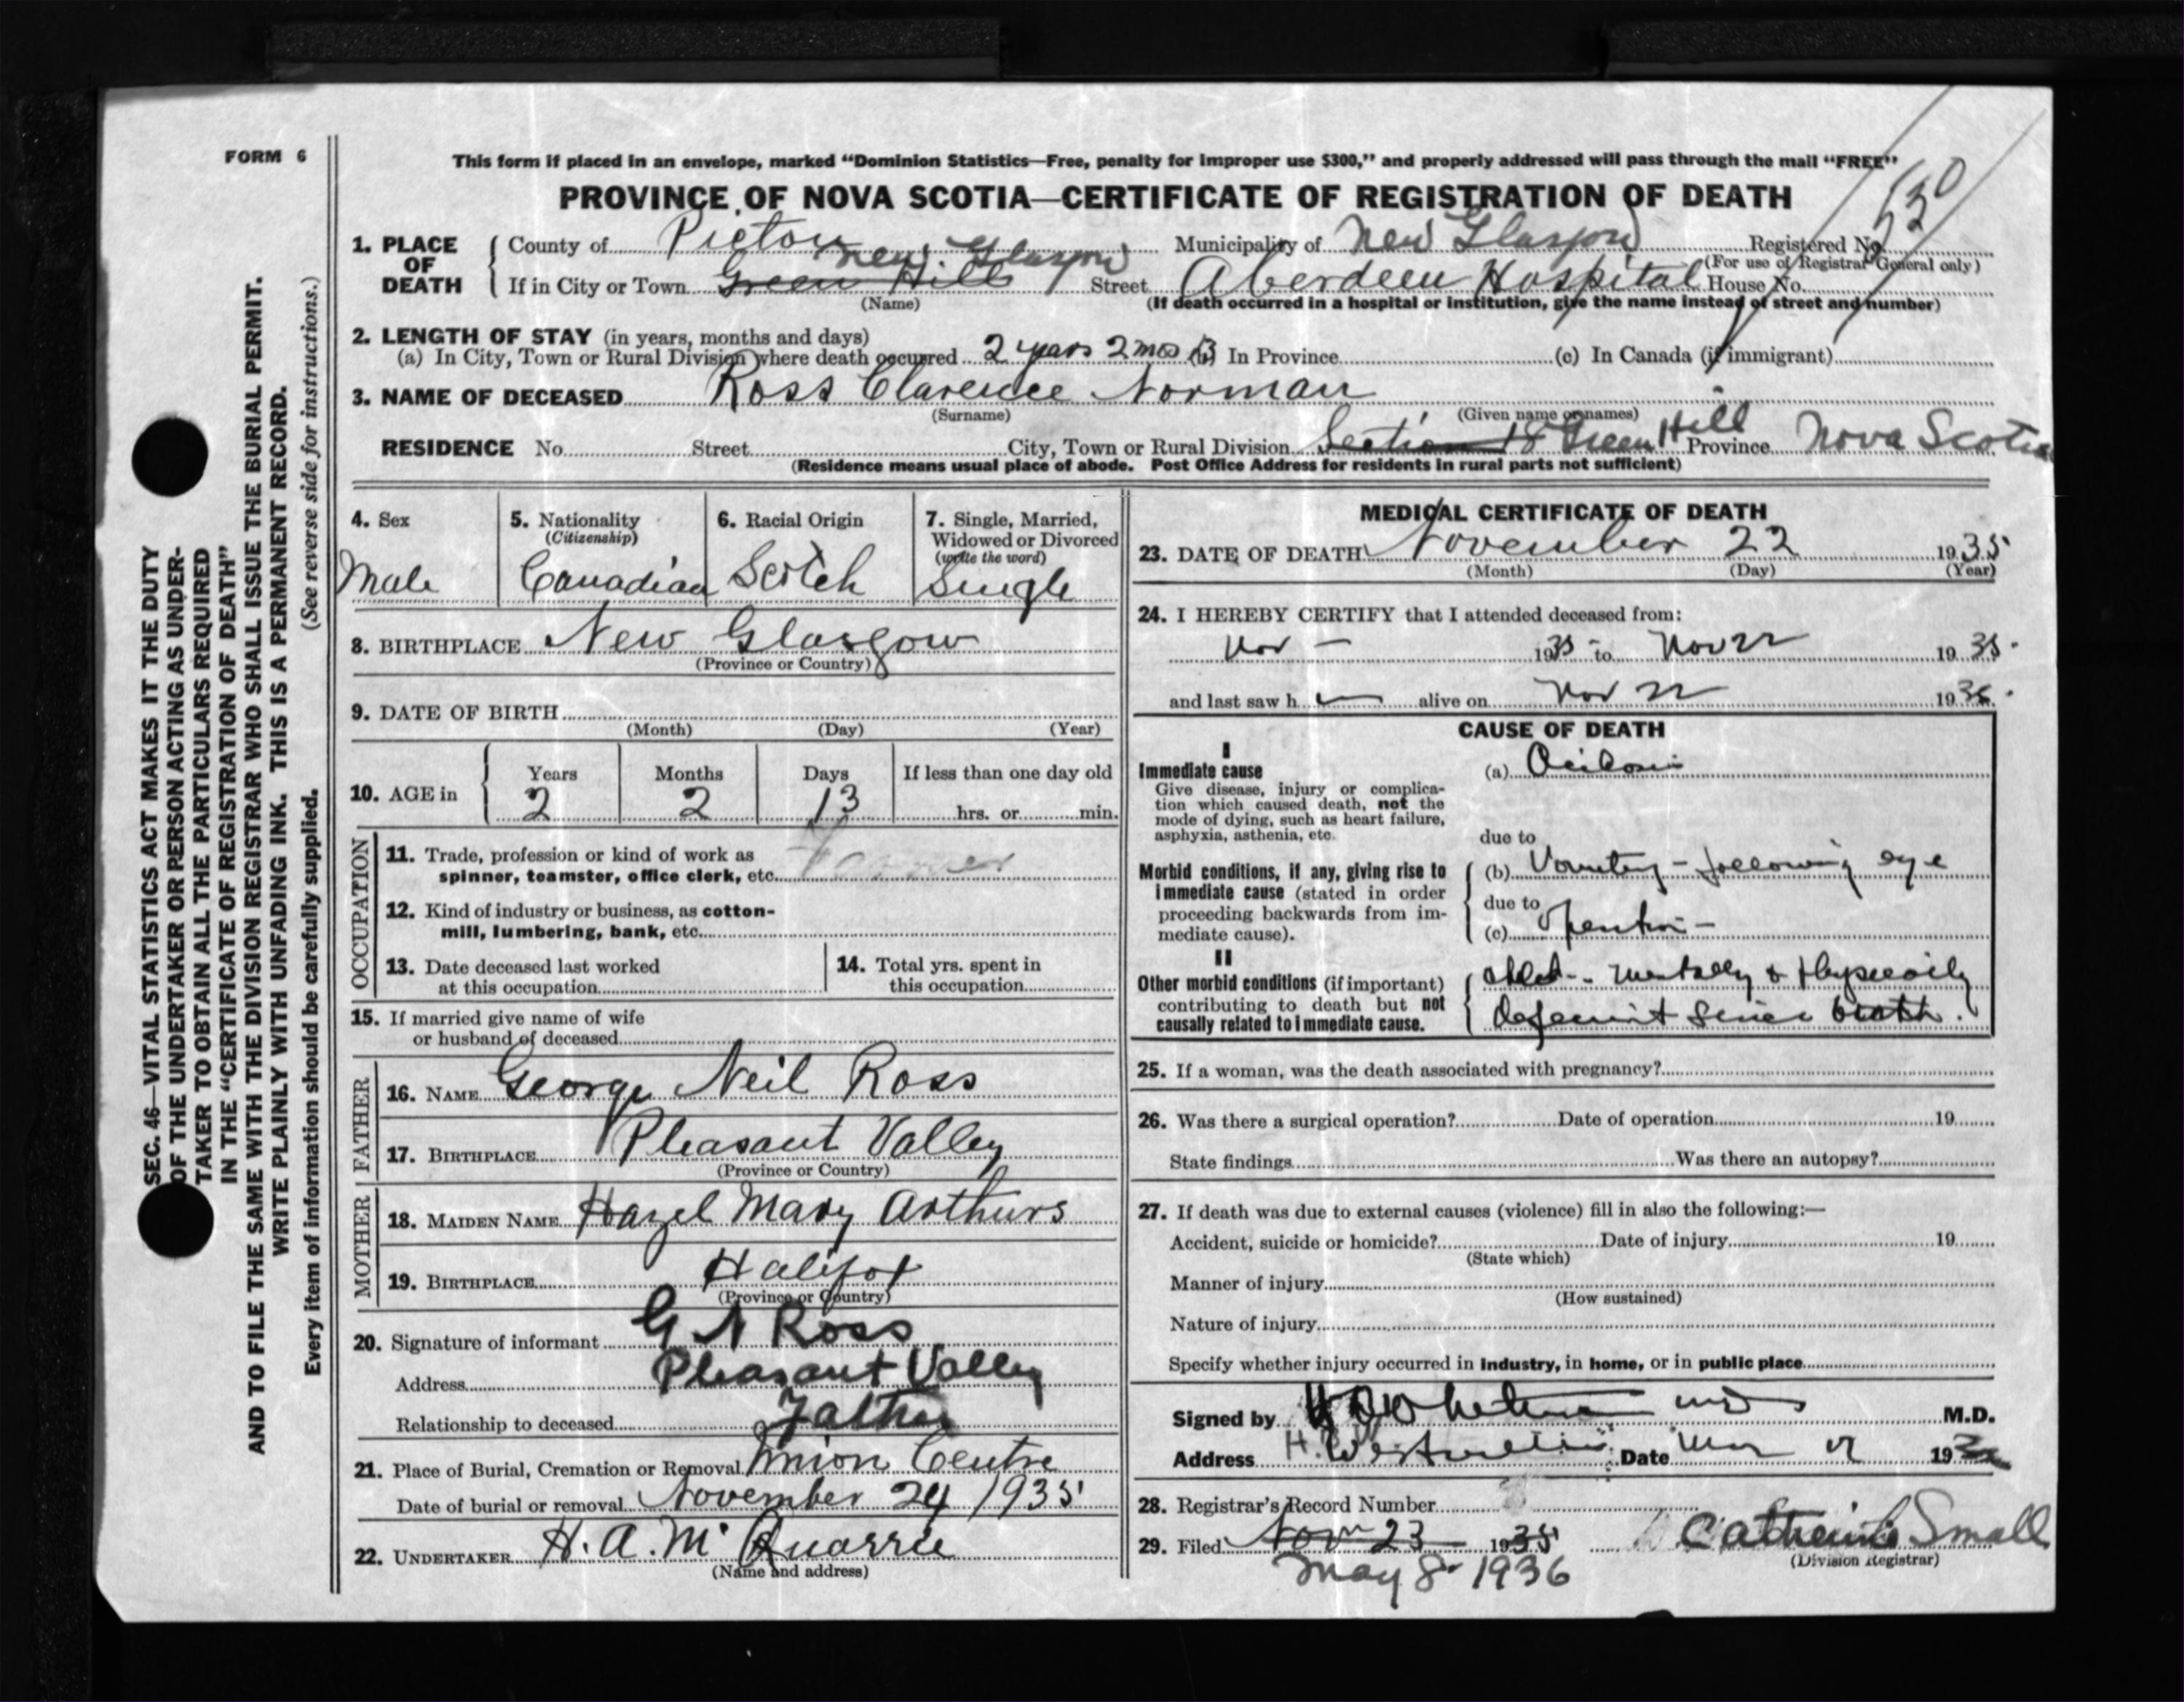 FORM 6
This form if placed in an envelope, marked "Dominion Statistics—Free, penalty for improper use $300," and properly addressed will pass through the mail "FREE"
PROVINCE OF NOVA SCOTIA—CERTIFICATE OF REGISTRATION OF DEATH
530
1. PLACE OF DEATH
County of Pictou Municipality of New Glasgow Registered No.
(For use of Registrar General only)
New Glasgow
If in City or Town Green Hill Street Aberdeen Hospital House No.
(Name) (If death occurred in a hospital or institution, give the name instead of street and number)
2. LENGTH OF STAY (in years, months and days)
(a) In City, Town or Rural Division where death occurred 2 years 2 mos 13 (b) In Province (c) In Canada (if immigrant)
3. NAME OF DECEASED Ross Clarence Norman
(Surname) (Given name or names)
RESIDENCE No. Street City, Town or Rural Division Section 18 Green Hill Province Nova Scotia
(Residence means usual place of abode. Post Office Address for residents in rural parts not sufficient)
4. Sex
Male
5. Nationality
(Citizenship)
Canadian
6. Racial Origin
Scotch
7. Single, Married,
Widowed or Divorced
(write the word)
Single
8. BIRTHPLACE New Glasgow
(Province or Country)
9. DATE OF BIRTH
(Month) (Day) (Year)
10. AGE in
Years Months Days If less than one day old
2 2 13 hrs. or min.
OCCUPATION
11. Trade, profession or kind of work as
spinner, teamster, office clerk, etc. Farmer
12. Kind of industry or business, as cotton-
mill, lumbering, bank, etc.
13. Date deceased last worked
at this occupation
14. Total yrs. spent in
this occupation
15. If married give name of wife
or husband of deceased
FATHER
16. NAME George Neil Ross
17. BIRTHPLACE Pleasant Valley
(Province or Country)
MOTHER
18. MAIDEN NAME Hazel Mary Arthurs
19. BIRTHPLACE Halifax
(Province or Country)
20. Signature of informant G N Ross
Address Pleasant Valley
Relationship to deceased Father
21. Place of Burial, Cremation or Removal Union Centre
Date of burial or removal November 24 1935
22. UNDERTAKER H. A. McQuarrie
(Name and address)
MEDICAL CERTIFICATE OF DEATH
23. DATE OF DEATH November 22 1935
(Month) (Day) (Year)
24. I HEREBY CERTIFY that I attended deceased from:
Nov – 1935 to Nov 22 1935.
and last saw h alive on Nov 22 1935.
CAUSE OF DEATH
I
Immediate cause
Give disease, injury or complica-
tion which caused death, not the
mode of dying, such as heart failure,
asphyxia, asthenia, etc.
(a) Acidosis
due to
Morbid conditions, if any, giving rise to
immediate cause (stated in order
proceeding backwards from im-
mediate cause).
(b) Vomiting – following eye
due to
(c) operation –
II
Other morbid conditions (if important)
contributing to death but not
causally related to immediate cause.
child – mentally & Physically
deficient since birth.
25. If a woman, was the death associated with pregnancy?
26. Was there a surgical operation? Date of operation 19
State findings Was there an autopsy?
27. If death was due to external causes (violence) fill in also the following:—
Accident, suicide or homicide? Date of injury 19
(State which)
Manner of injury
(How sustained)
Nature of injury
Specify whether injury occurred in industry, in home, or in public place
Signed by M.D.
Address Westville Date 193
28. Registrar's Record Number
29. Filed Nov 23 1935 Catherine Small
(Division Registrar)
May 8 1936
SEC. 46—VITAL STATISTICS ACT MAKES IT THE DUTY
OF THE UNDERTAKER OR PERSON ACTING AS UNDER-
TAKER TO OBTAIN ALL THE PARTICULARS REQUIRED
IN THE "CERTIFICATE OF REGISTRATION OF DEATH"
AND TO FILE THE SAME WITH THE DIVISION REGISTRAR WHO SHALL ISSUE THE BURIAL PERMIT.
WRITE PLAINLY WITH UNFADING INK. THIS IS A PERMANENT RECORD.
Every item of information should be carefully supplied. (See reverse side for instructions.)